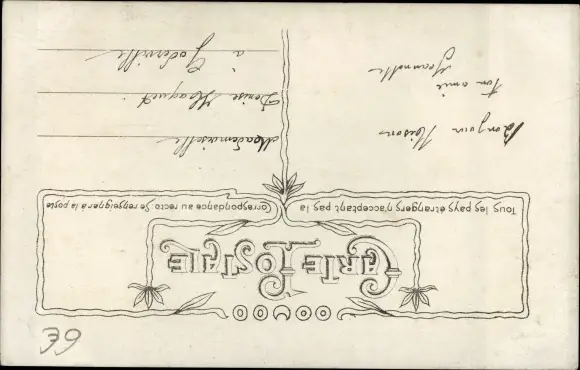 CARTE POSTALE
Tous les pays étrangers n'acceptent pas la
Correspondance au recto. Se renseigner à la poste
Bonjour
Ton amie
Jeannette
Mademoiselle
Denise
à Goderville
6€